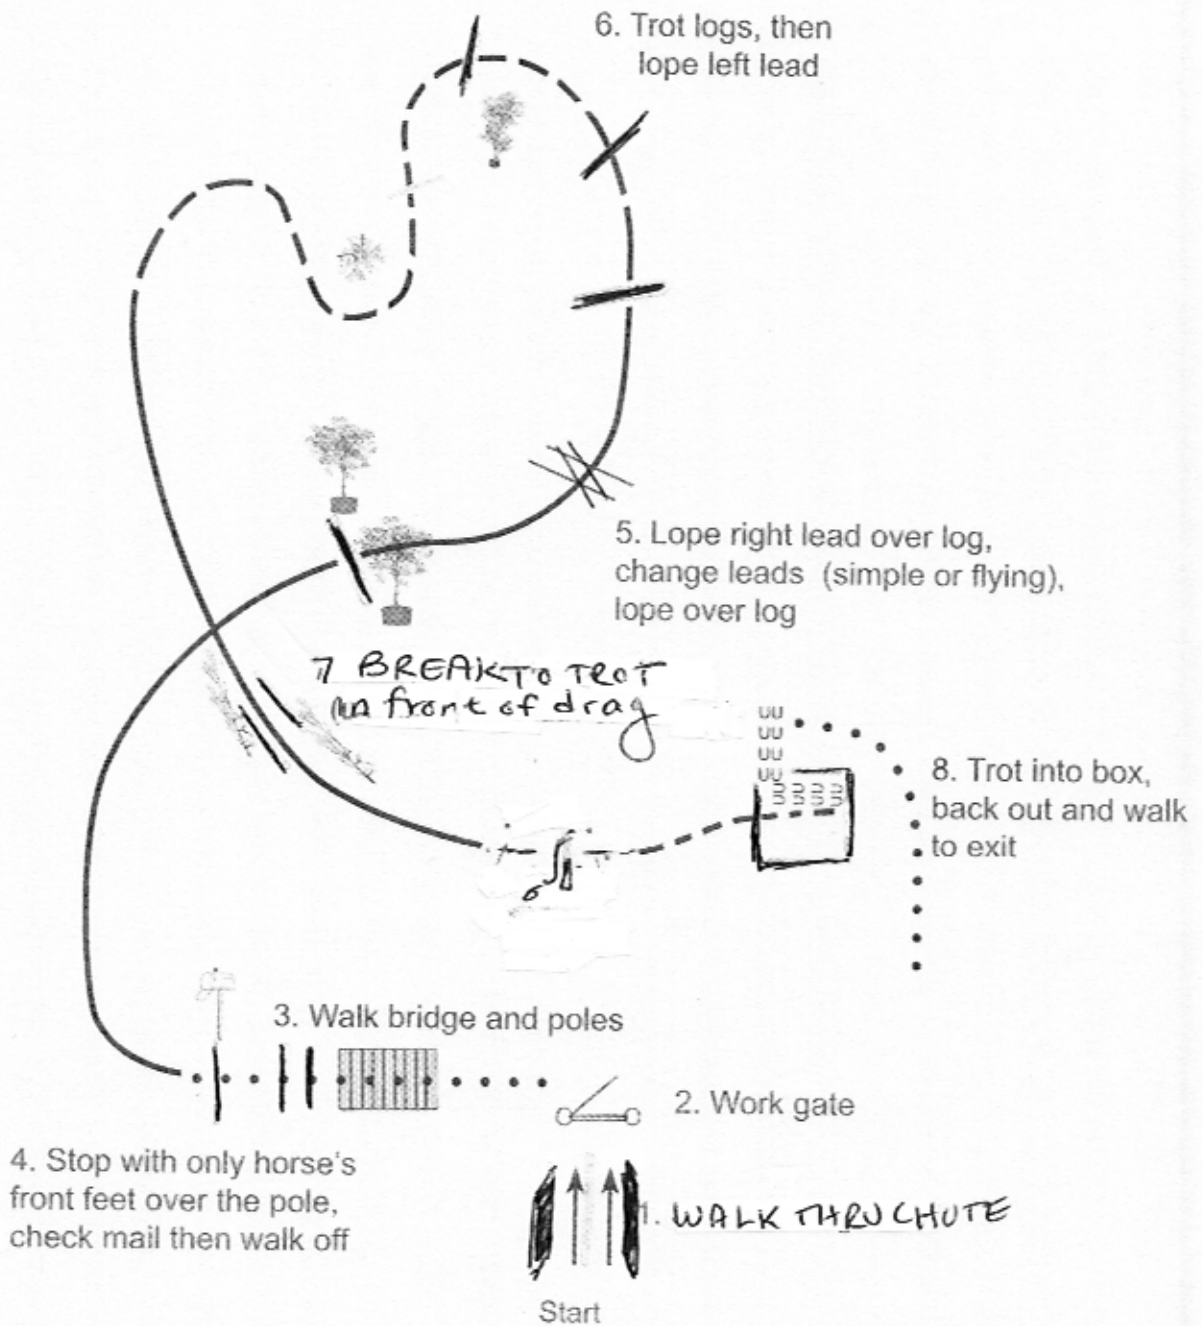 6. Trot logs, then
lope left lead
5. Lope right lead over log,
change leads (simple or flying),
lope over log
7 BREAK TO TROT
in front of drag
8. Trot into box,
back out and walk
to exit
3. Walk bridge and poles
2. Work gate
4. Stop with only horse's
front feet over the pole,
check mail then walk off
1. WALK THRU CHUTE
Start